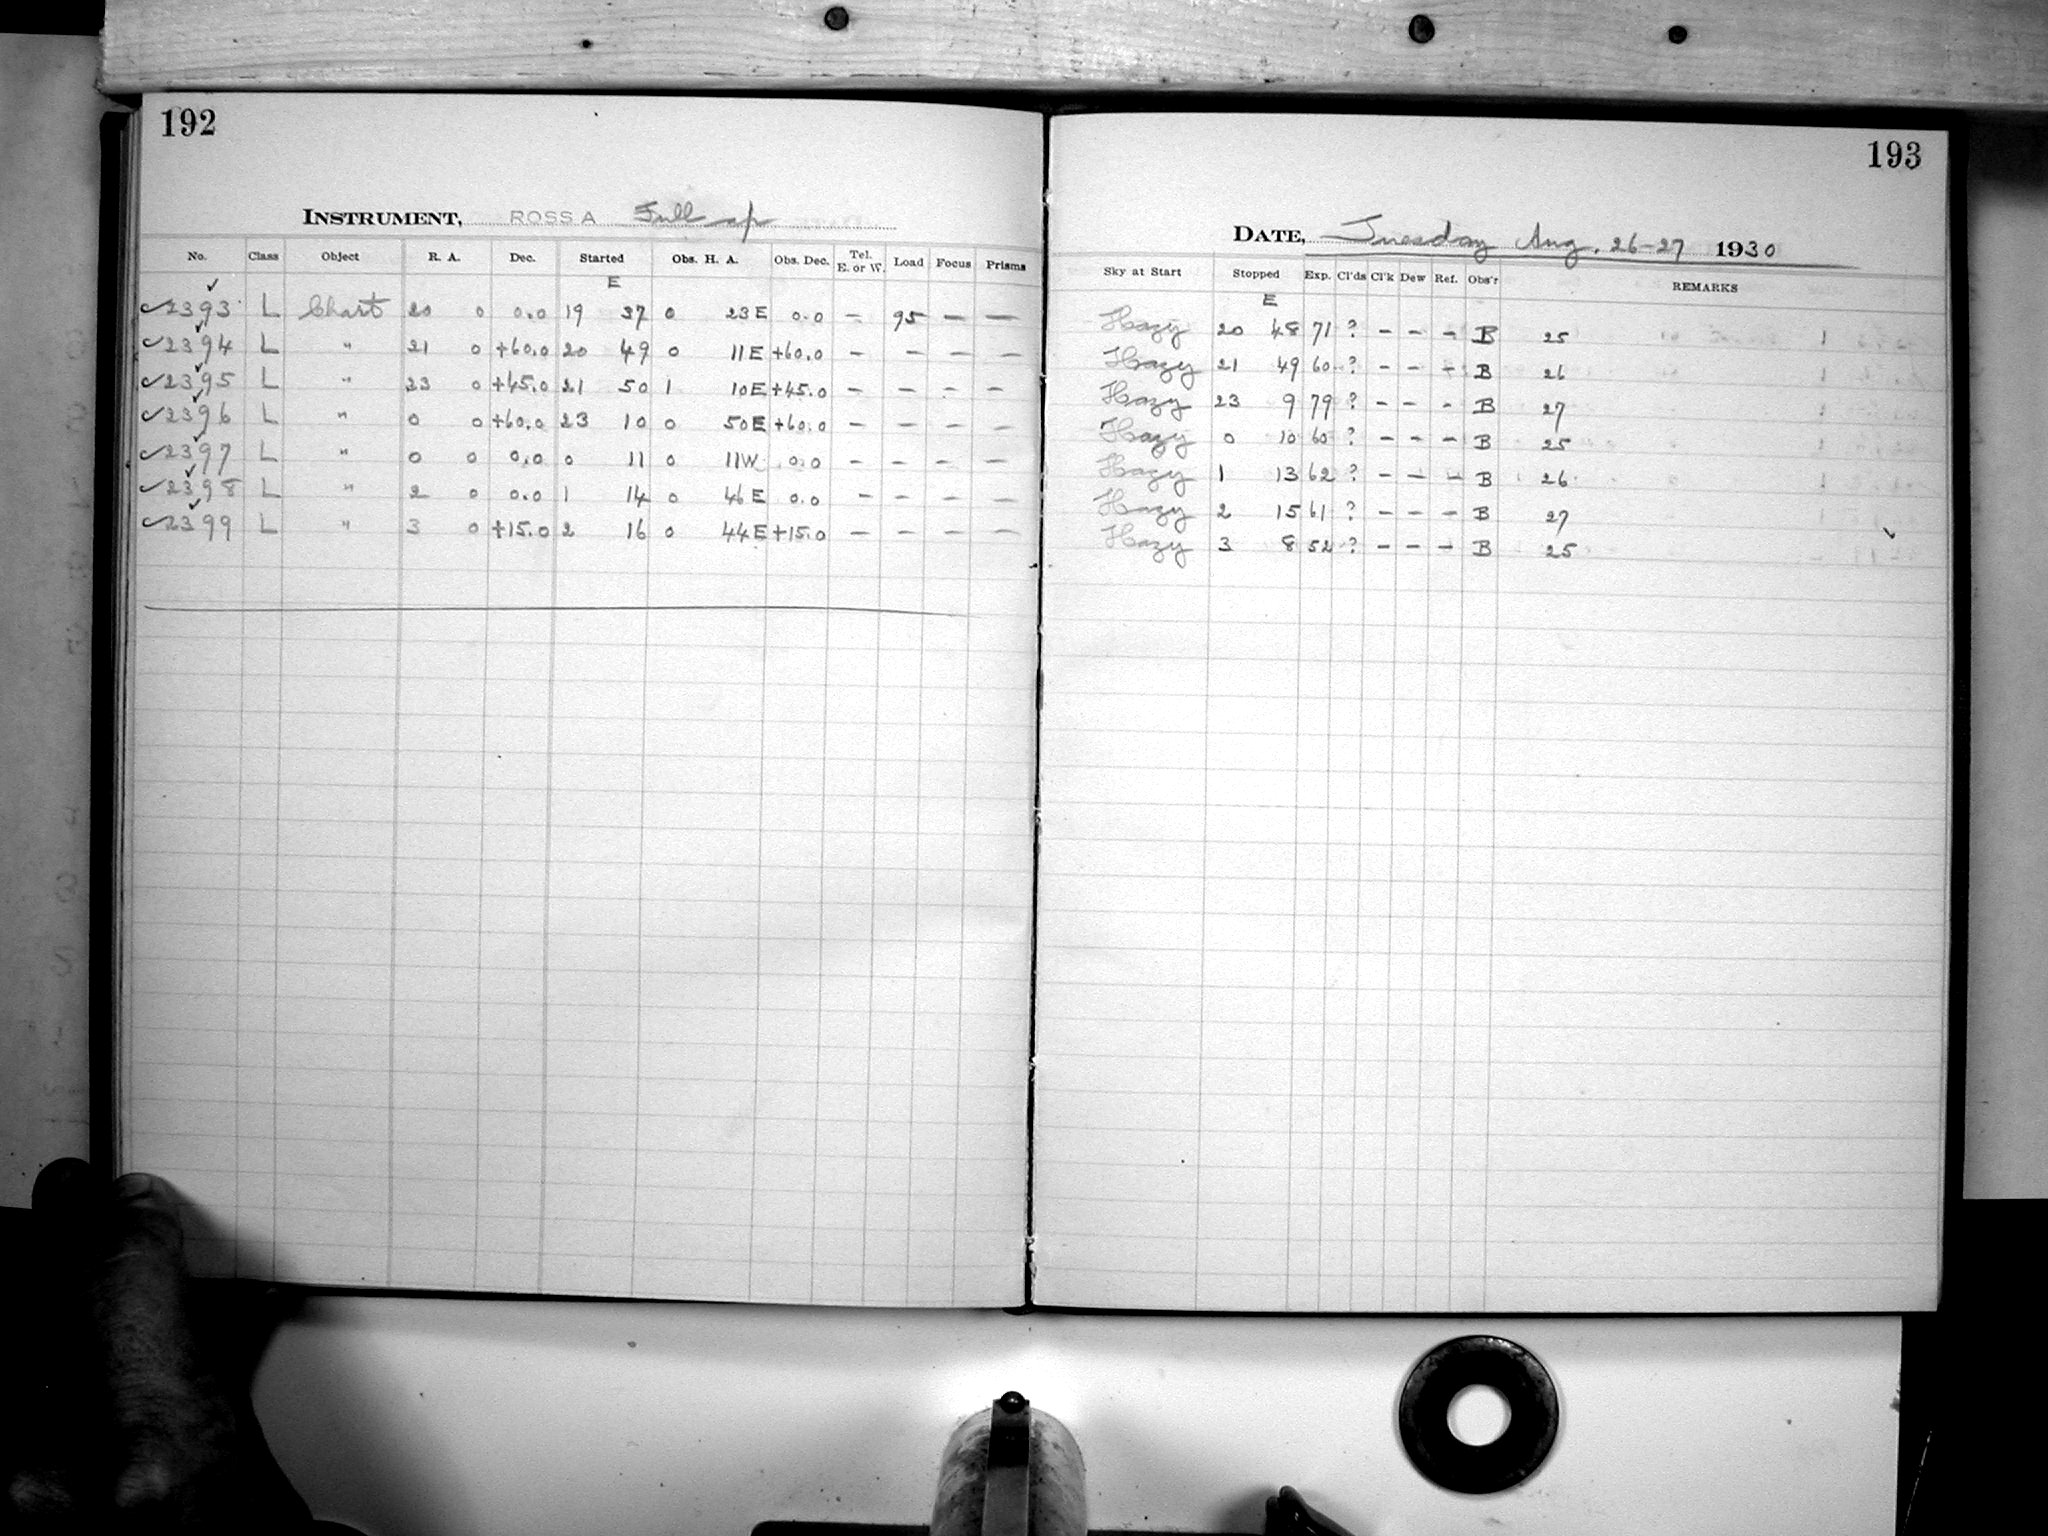 192
INSTRUMENT, ROSS A Full ap
No. Class Object R. A. Dec. Started Obs. H. A. Obs. Dec. Tel. E. or W. Load Focus Prisms
E
2393 L Chart 20 0 0.0 19 37 0 23 E 0.0 – 95 – –
2394 L " 21 0 +60.0 20 49 0 11 E +60.0 – – – –
2395 L " 23 0 +45.0 21 50 1 10 E +45.0 – – – –
2396 L " 0 0 +60.0 23 10 0 50 E +60.0 – – – –
2397 L " 0 0 0.0 0 11 0 11 W 0.0 – – – –
2398 L " 2 0 0.0 1 14 0 46 E 0.0 – – – –
2399 L " 3 0 +15.0 2 16 0 44 E +15.0 – – – –
193
DATE, Tuesday Aug. 26–27 1930
Sky at Start Stopped Exp. Cl'ds Cl'k Dew Ref. Obs'r REMARKS
E
Hazy 20 48 71 ? – – – B 25
Hazy 21 49 60 ? – – – B 26
Hazy 23 9 79 ? – – – B 27
Hazy 0 10 60 ? – – – B 25
Hazy 1 13 62 ? – – – B 26
Hazy 2 15 61 ? – – – B 27
Hazy 3 8 52 ? – – – B 25